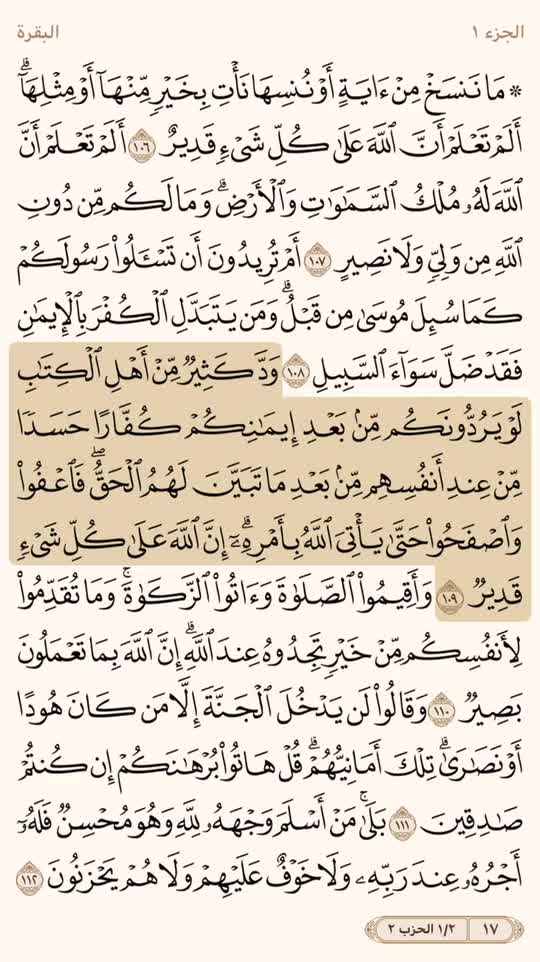 الجزء ١
البقرة
* مَا نَنسَخْ مِنْ ءَايَةٍ أَوْ نُنسِهَا نَأْتِ بِخَيْرٍ مِّنْهَآ أَوْ مِثْلِهَآۗ
أَلَمْ تَعْلَمْ أَنَّ ٱللَّهَ عَلَىٰ كُلِّ شَىْءٍ قَدِيرٌ ١٠٦ أَلَمْ تَعْلَمْ أَنَّ
ٱللَّهَ لَهُۥ مُلْكُ ٱلسَّمَٰوَٰتِ وَٱلْأَرْضِۗ وَمَا لَكُم مِّن دُونِ
ٱللَّهِ مِن وَلِىٍّ وَلَا نَصِيرٍ ١٠٧ أَمْ تُرِيدُونَ أَن تَسْـَٔلُوا۟ رَسُولَكُمْ
كَمَا سُئِلَ مُوسَىٰ مِن قَبْلُۗ وَمَن يَتَبَدَّلِ ٱلْكُفْرَ بِٱلْإِيمَٰنِ
فَقَدْ ضَلَّ سَوَآءَ ٱلسَّبِيلِ ١٠٨ وَدَّ كَثِيرٌ مِّنْ أَهْلِ ٱلْكِتَٰبِ
لَوْ يَرُدُّونَكُم مِّنۢ بَعْدِ إِيمَٰنِكُمْ كُفَّارًا حَسَدًا
مِّنْ عِندِ أَنفُسِهِم مِّنۢ بَعْدِ مَا تَبَيَّنَ لَهُمُ ٱلْحَقُّۖ فَٱعْفُوا۟
وَٱصْفَحُوا۟ حَتَّىٰ يَأْتِىَ ٱللَّهُ بِأَمْرِهِۦٓۗ إِنَّ ٱللَّهَ عَلَىٰ كُلِّ شَىْءٍ
قَدِيرٌ ١٠٩ وَأَقِيمُوا۟ ٱلصَّلَوٰةَ وَءَاتُوا۟ ٱلزَّكَوٰةَۚ وَمَا تُقَدِّمُوا۟
لِأَنفُسِكُم مِّنْ خَيْرٍ تَجِدُوهُ عِندَ ٱللَّهِۗ إِنَّ ٱللَّهَ بِمَا تَعْمَلُونَ
بَصِيرٌ ١١٠ وَقَالُوا۟ لَن يَدْخُلَ ٱلْجَنَّةَ إِلَّا مَن كَانَ هُودًا
أَوْ نَصَٰرَىٰۗ تِلْكَ أَمَانِيُّهُمْۗ قُلْ هَاتُوا۟ بُرْهَٰنَكُمْ إِن كُنتُمْ
صَٰدِقِينَ ١١١ بَلَىٰۚ مَنْ أَسْلَمَ وَجْهَهُۥ لِلَّهِ وَهُوَ مُحْسِنٌ فَلَهُۥٓ
أَجْرُهُۥ عِندَ رَبِّهِۦ وَلَا خَوْفٌ عَلَيْهِمْ وَلَا هُمْ يَحْزَنُونَ ١١٢
١٧
١/٢ الحزب ٢